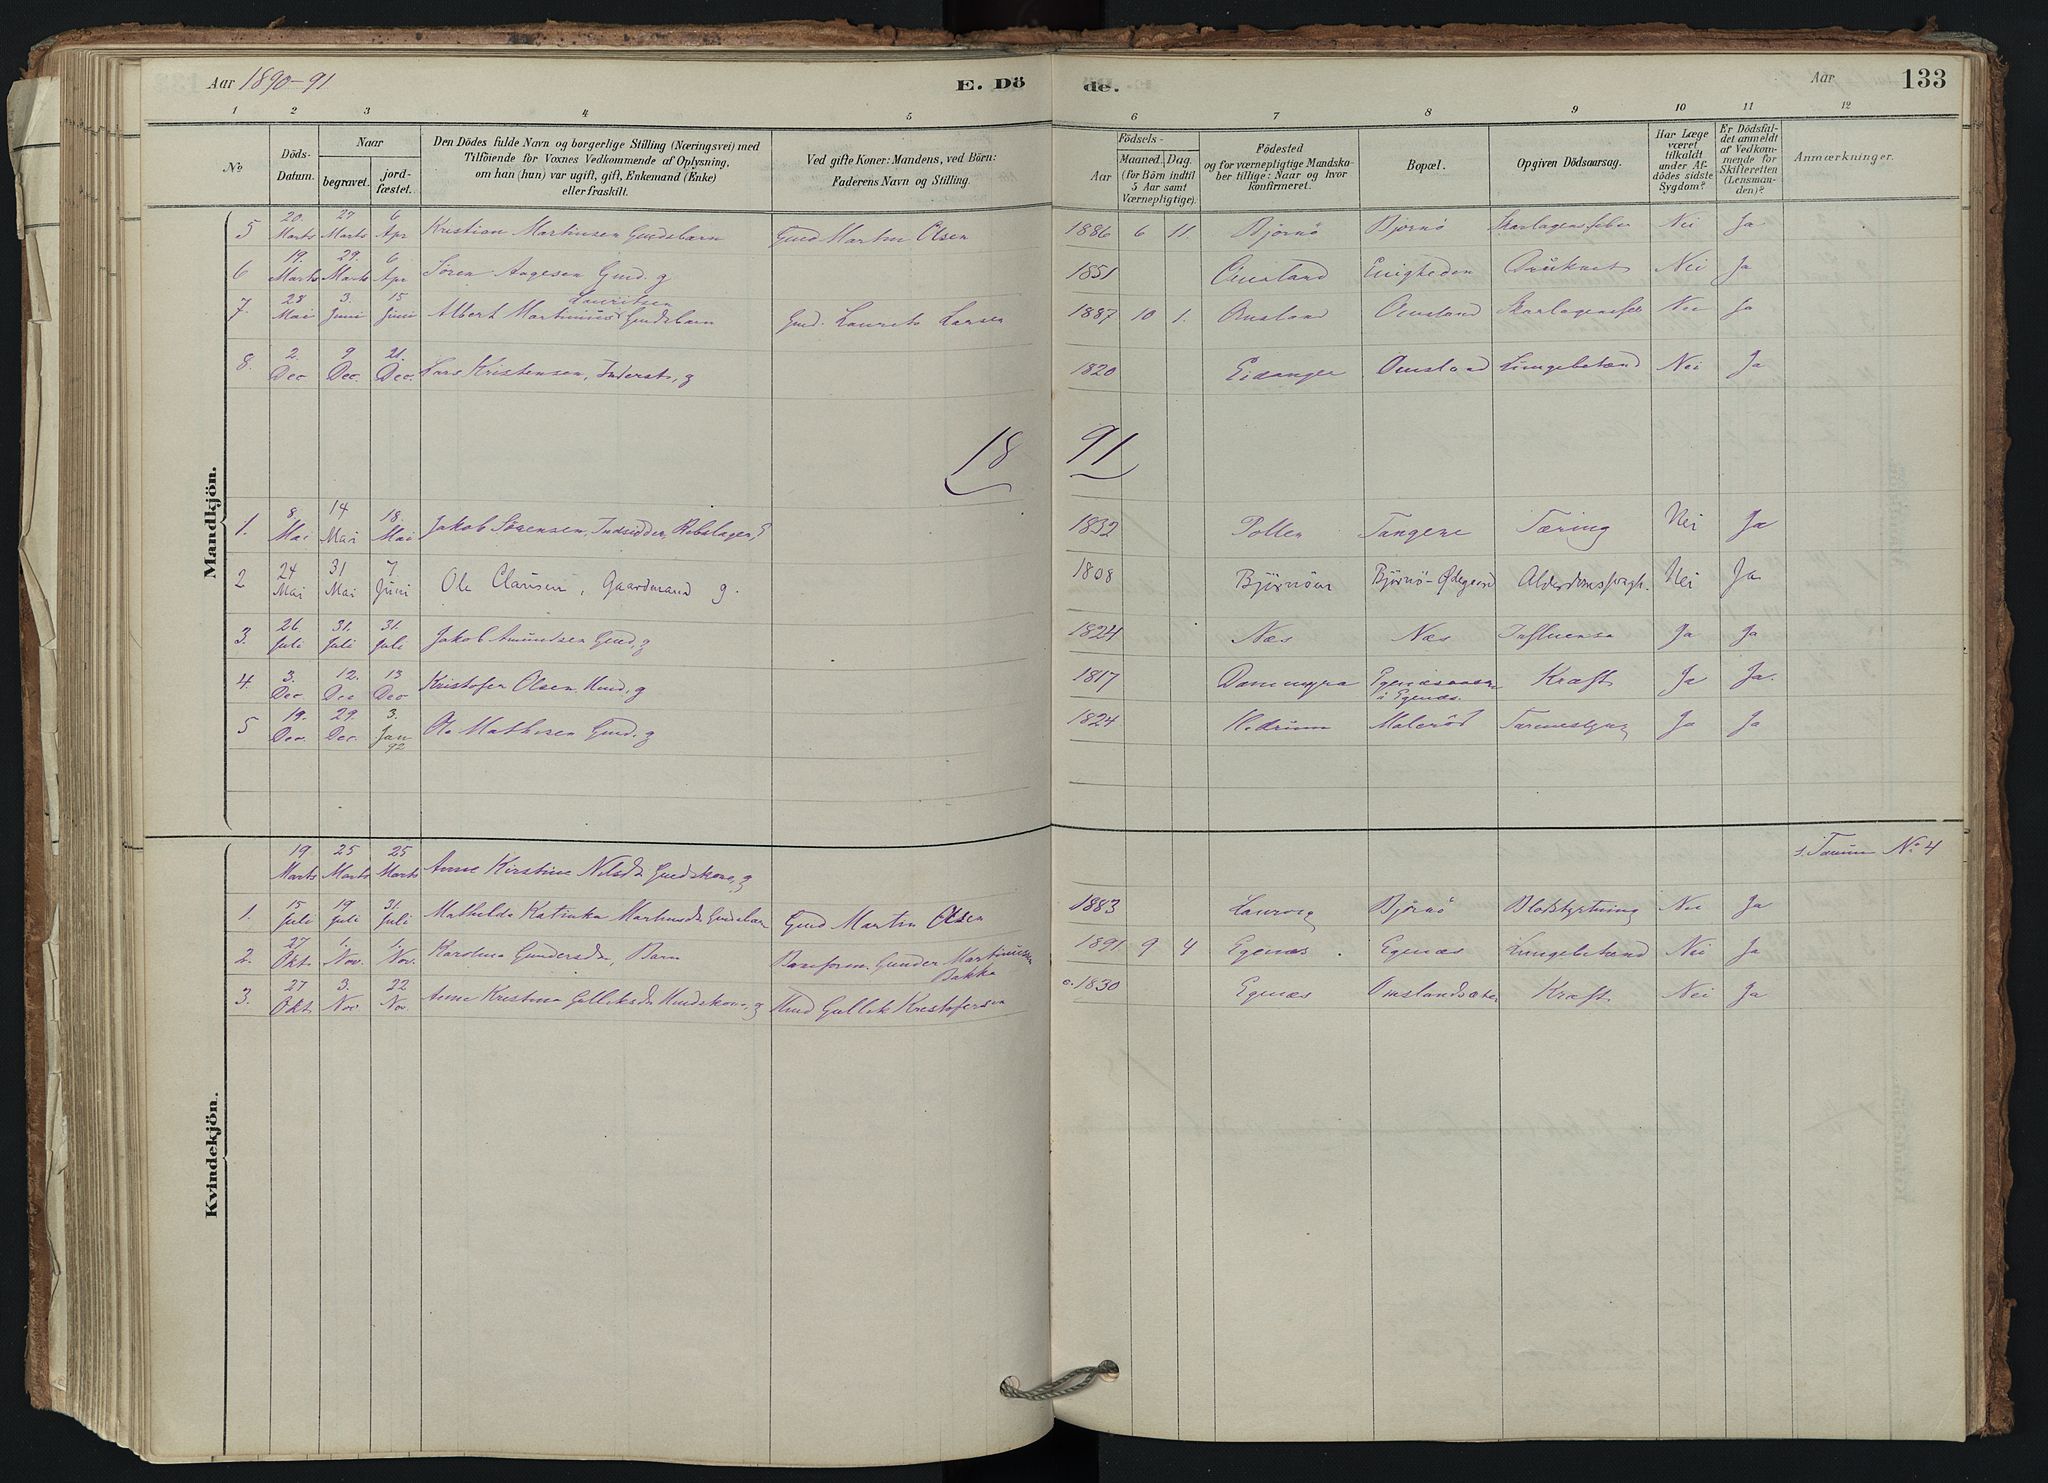 Aar 1890-91. E. Dö de. Aar 133
1 2 3 4 5 6 7 8 9 10 11 12
No Döds-Datum. Naar begravet. jordfæstet. Den Dödes fulde Navn og borgerlige Stilling (Næringsvei) med Tilföiende for Voxnes Vedkommende af Oplysning, om han (hun) var ugift, gift, Enkemand (Enke) eller fraskilt. Ved gifte Koner: Mandens, ved Börn: Faderens Navn og Stilling. Födsels- Aar Maaned. Dag. (for Börn indtil 5 Aar samt Værnepligtige). Födested og for værnepligtige Mandskaber tillige: Naar og hvor konfirmeret. Bopæl. Opgiven Dödsaarsag. Har Læge været tilkaldt under Afdödes sidste Sygdom? Er Dödsfaldet anmeldt af Vedkommende for Skifteretten (Lensmanden)? Anmærkninger.
Mandkjön.
5 20 Marts 27 Marts 6 Apr Kristian Martinsen Gmdsbarn Gmd Martin Olsen 1886 6 11. Bjørnø Bjørnø Skarlagensfeber Nei Ja
6 19. Marts 29. Marts 6 Apr Søren Aagesen Gmd. g 1851 Omsland Enigheden Nei Ja
7. 28 Mai 3. Juni 15 Juni Albert Martinius Lauritsen Gmdsbarn Gmd. Laurits Larsen 1887 10 1. Omsland Omsland Skarlagensfeb Nei Ja
8. 2. Dec. 9 Dec. 21. Dec. Lars Kristensen, Inderst, g 1820 Eidanger Omsland Lungebetænd Nei Ja
18 91
1. 8. Mai 14 Mai 18. Mai Jakob Sørensen, Indsidder, Rebslager, E 1832 Pollen Tangene Tæring Nei Ja
2 24 Mai 31 Mai 7 Juni Ole Clausen, Gaardmand g. 1808 Bjørnøen Bjørnø-Ødegaard Alderdomssvagh. Nei Ja
3. 26 Juli 31. Juli 31. Juli Jakob Amundsen Gmd, g 1824 Næs Næs Influensa Ja Ja
4. 3. Dec 12. Dec 13 Dec Kristofer Olsen Hmd, g 1817 Dammyra i Egenæs. Kræft Ja Ja.
5 19. Dec. 29. Dec. 3. Jan 92 Ole Mathisen Gmd. g 1824 Hedrum Malerød Ja Ja
Kvindekjön.
19 Marts 25 Marts 25 Marts Anne Kirstine Nilsdr Gmdskone, g s. Tanum No 4
1. 15 Juli 19 Juli 31. Juli Mathilda Katinka Martinsdr Gmdsbarn Gmd Martin Olsen 1883 Laurvig Bjørnø Blodstyrtning Nei Ja
2. 27 Okt 1. Nov. 1. Nov. Karolina Gundersdr, Barn Baneform. Gunder Martiniusen Bakke 1891 9 4 Egenæs Egenæs Lungebetænd Nei Ja
3. 27 Okt 3. Nov 22 Nov. Anne Kristina Gulliksdr Hmdskone, g Hmd Gullik Kristofersen c. 1830 Egenæs Omslandsæter Kræft Nei Ja